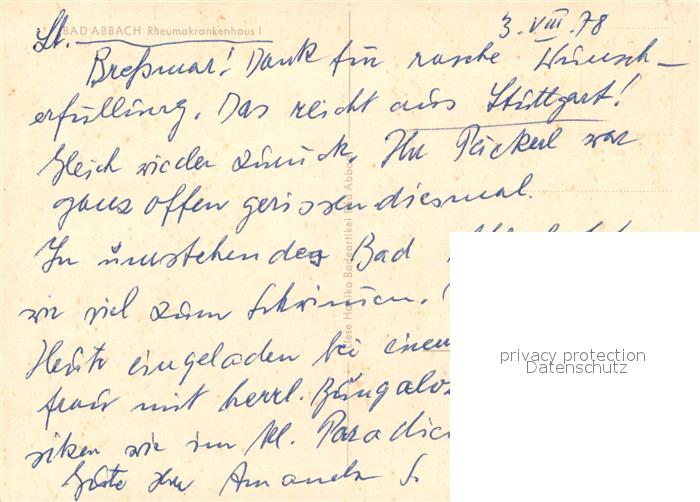 BAD ABBACH Rheumakrankenhaus I
3. VIII. 78
Lb. Breßmar! Dank für rasche Wunsch-
erfüllung. Das reicht aus Stuttgart!
Gleich wieder zurück. Ihr Päckerl war
ganz offen gerissen diesmal.
In umstehenden Bad
wir viel zum Schwimmen.
Heute eingeladen bei einem
frau mit herrl. Bungalow
sitzen wie im kl. Paradies
Gute Ihr Amanda S.
Hanika Badeartikel Bad Abbach
privacy protection
Datenschutz